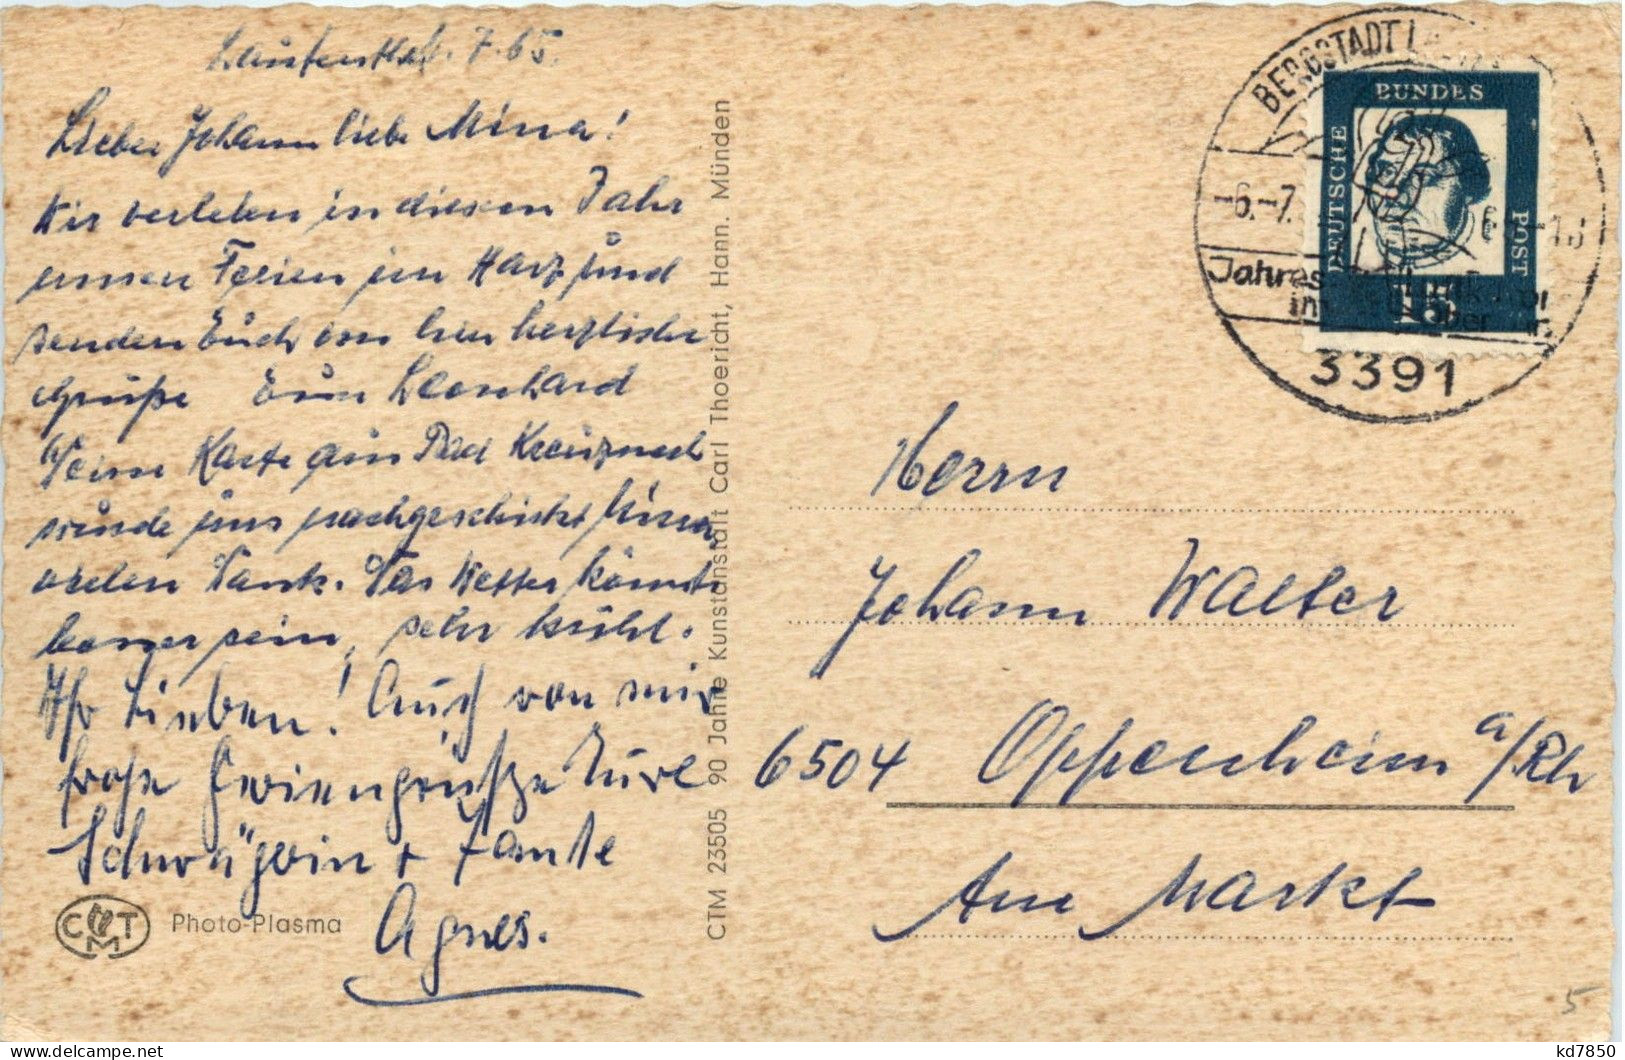 Lautenthal. 7.65.
Lieber Johann liebe Mina!
Wir verleben in diesem Jahr
unsere Ferien im Harz und
senden Euch von hier herzliche
Grüße Euer Leonhard
Deine Karte aus Bad Kreuznach
wurde uns nachgeschickt Mina,
vielen Dank. Das Wetter könnte
besser sein, sehr kühl.
Ihr Lieben! Auch von mir
frohe Feriengrüße Eure
Schwägerin + Tante
Agnes.
CMT Photo-Plasma
CTM 23505 90 Jahre Kunstanstalt Carl Thoericht, Hann. Münden
BERGSTADT
-6.-7.
Jahres
3391
DEUTSCHE
BUNDES
POST
15
Herrn
Johann Walter
6504 Oppenheim a/Rh
Am Markt
5
kd7850